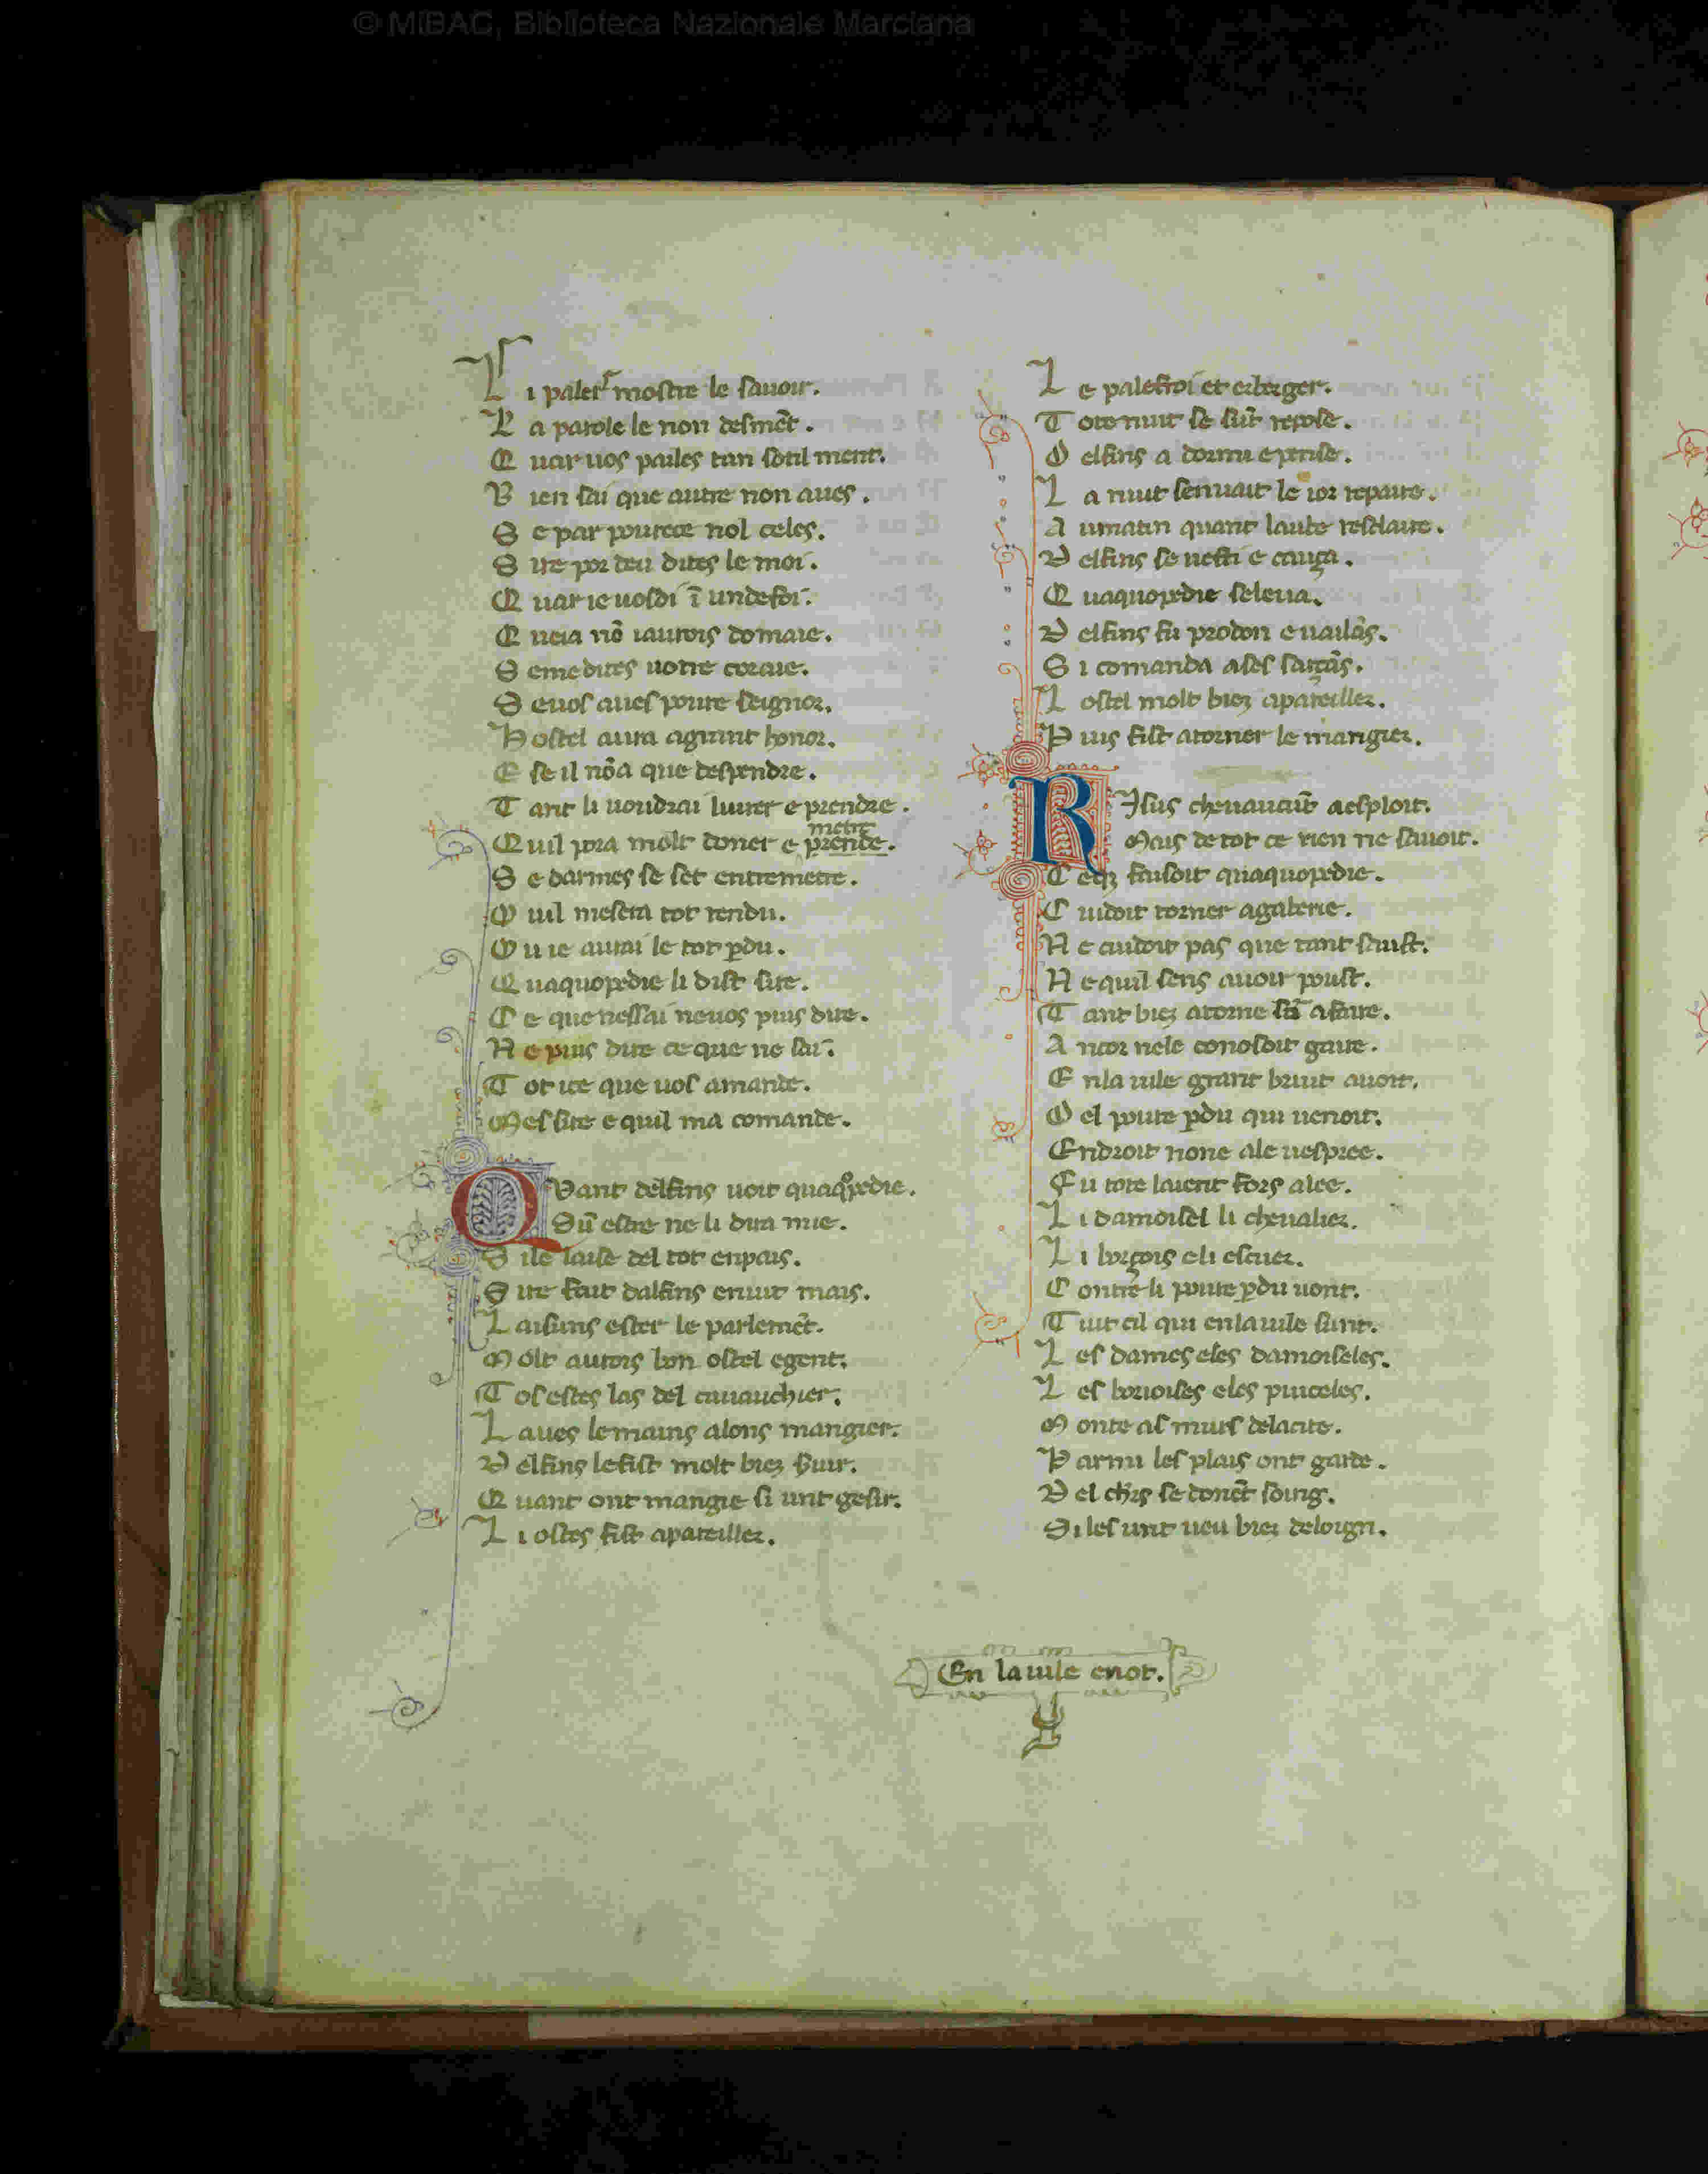 © MiBAC, Biblioteca Nazionale Marciana
L i paler mostre le sauoir.
L a parole le non desmēt.
Q uar uos pailes tan sotil ment.
B ien sai que autre non aues.
S e par pourece nol celes.
S ire por deu dites le moi.
Q uar ie uosdi ī undefoi.
Q ueia nō iaurois domaie.
S eme dites uotre coraie.
S euos aues poure seignor.
H ostel aura agrant honor.
E se il nōa que despendre.
T ant li uoudrai liurer e prendre.
metre
Q uil pora molt doner e prende.
S e darmes se set entremetre.
O uil mesera tot rendu.
O u ie aurai le tot ꝑdu.
Q uaquopedie li dist sire.
C e que nessai neuos puis dire.
N e puis dire ce que ne sai.
T ot ice que uos amande.
M es sire e quil ma comande.
Q Vant delfins uoit quaqopedie.
Sū estre ne li dira mie.
S ile laise del tot enpais.
S ire fait dalfins enuit mais.
L aisuns ester le parlemēt.
M olt aurois bon ostel egent.
T os estes las del cauauchier.
L aues lemains alons mangier.
D elfins lefist molt biez suir.
Q uant ont mangie si unt gesir.
L i ostes fist apareiller.
L e palefroi et erberger.
T ote nuit se sūt repose.
D elfins a dormi e pense.
L a nuit senuait le ior repaire.
A umatin quant laube resclaire.
D elfins se uesti e cauça.
Q uaquopedie seleua.
D elfins fu prodon e uailās.
S i comanda ases sarçās.
L ostel molt biez apareiller.
P uis fist atorner le mangier.
R Isus cheuaucūt aesploit.
Mais de tot ce rien ne sauoit.
C eqz faisoit quaquopedie.
C uidoit torner agaberie.
N e cuidoit pas que tant sauist.
N e quil sens auoir poust.
T ant biez atorne sū afaire.
A ncor nele conosoit gaire.
E nla uile grant bruit auoit.
D el poure ꝑdu qui uenoit.
Endroit none ale uespree.
F u tote laient fors alee.
L i damoisel li cheualier.
L i borçois eli escuer.
C ontre li poure ꝑdu uont.
T uit cil qui enlauile sunt.
L es dames eles damoiseles.
L es borioises eles puiceles.
M onte as murs delacite.
P armi les plais ont garde.
D el chrs se donēt soing.
Si les unt ueu biez deloign.
En lauile enot.